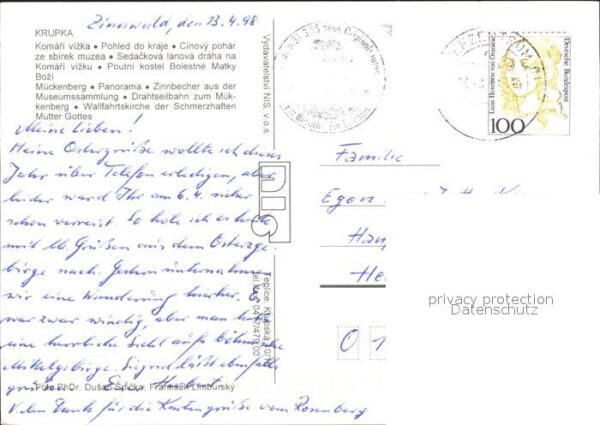 Zinnwald, den 13.4.98
KRUPKA
Komáří vížka • Pohled do kraje • Cínový pohár
ze sbírek muzea • Sedačková lanová dráha na
Komáří vížku • Poutní kostel Bolestné Matky
Boží
Mückenberg • Panorama • Zinnbecher aus der
Museumssammlung • Drahtseilbahn zum Mük-
kenberg • Wallfahrtskirche der Schmerzhaften
Mutter Gottes
Meine Lieben!
Meine Ostergrüße wollte ich dieses
Jahr über Telefon erledigen, aber
leider ward Ihr am 6.4. sicher
schon verreist. So hole ich es heute
mit lb. Grüßen aus dem Osterzge-
birge nach. Gestern unternahmen
wir eine Wanderung hierher. Es
war zwar windig, aber man hatte
eine herrliche Sicht aufs böhmische
Mittelgebirge. Sigrid läßt ebenfalls
grüßen. Euer
Foto PhDr. Dušan Špička, František Limburský
Vielen Dank für die Kartengrüße vom Rosenberg
Vydavatelství NIS, v.o.s.
nis
Teplice, Krupská
0417/479100
Deutsche Bundespost
Luise Henriette von Oranien
100
Familie
Egon
Han
He
0 1
privacy protection
Datenschutz